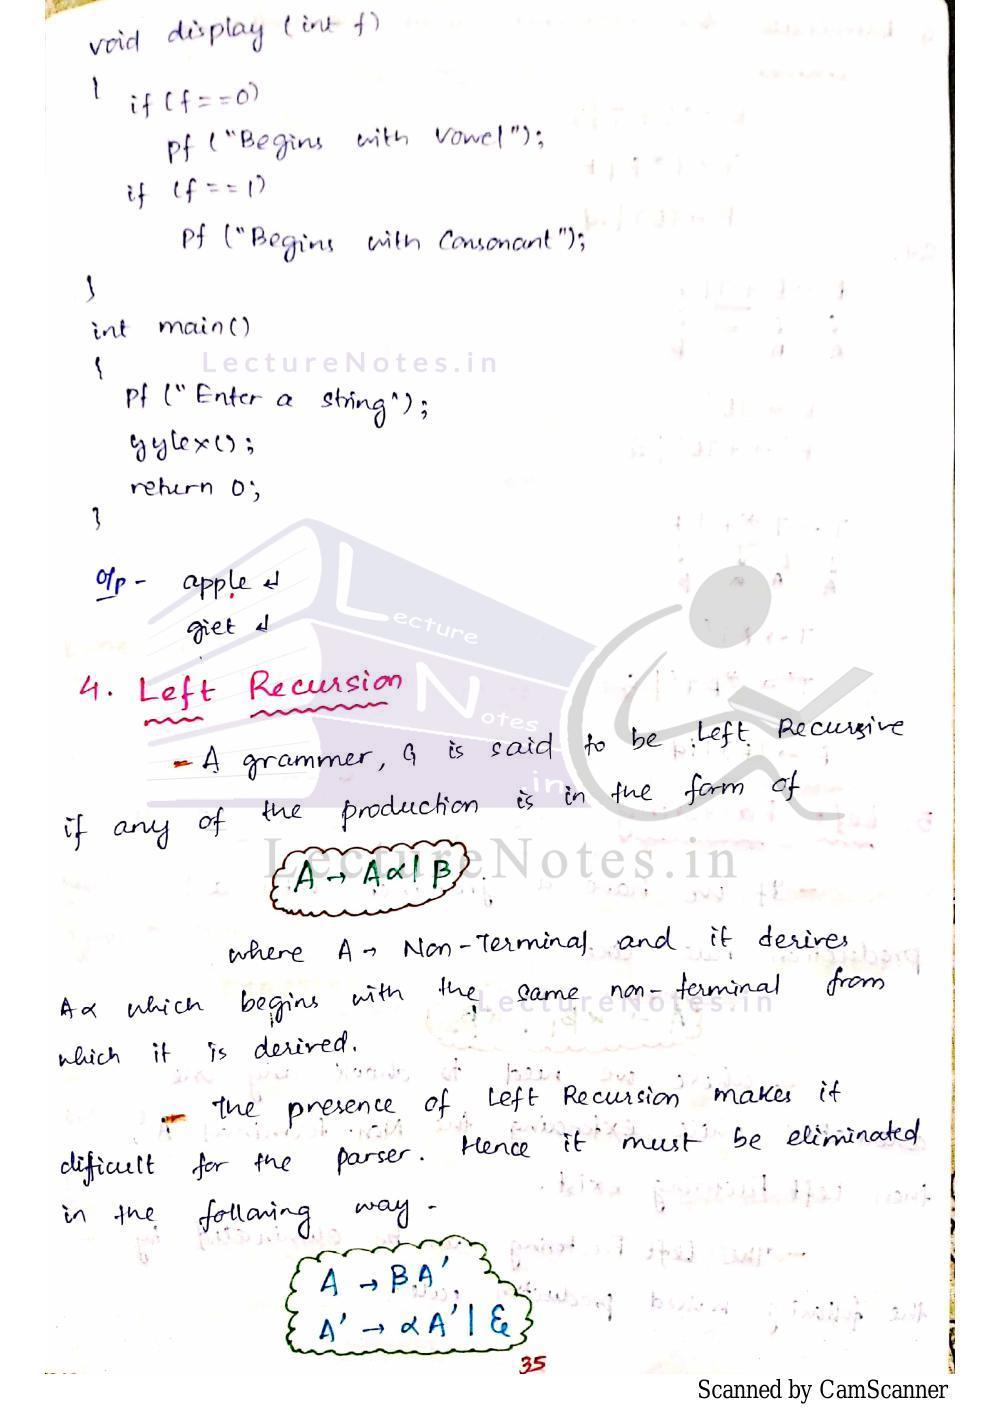 void display (int f)
{
if (f==0)
Pf ("Begins with Vowel");
if (f==1)
Pf ("Begins with Consonant");
}
int main()
LectureNotes.in
{
Pf ("Enter a string");
yylex();
return 0;
}
O/p - apple ↵
giet ↵
Lecture
Notes
in
4. Left Recursion
- A grammer, G is said to be Left Recursive
if any of the production is in the form of
LectureNotes.in
A → Aα | β
where A → Non-Terminal and it derives
Aα which begins with the same non-terminal from
LectureNotes.in
which it is derived.
- The presence of Left Recursion makes it
difficult for the parser. Hence it must be eliminated
in the following way -
A → βA'
A' → αA' | ε
35
Scanned by CamScanner